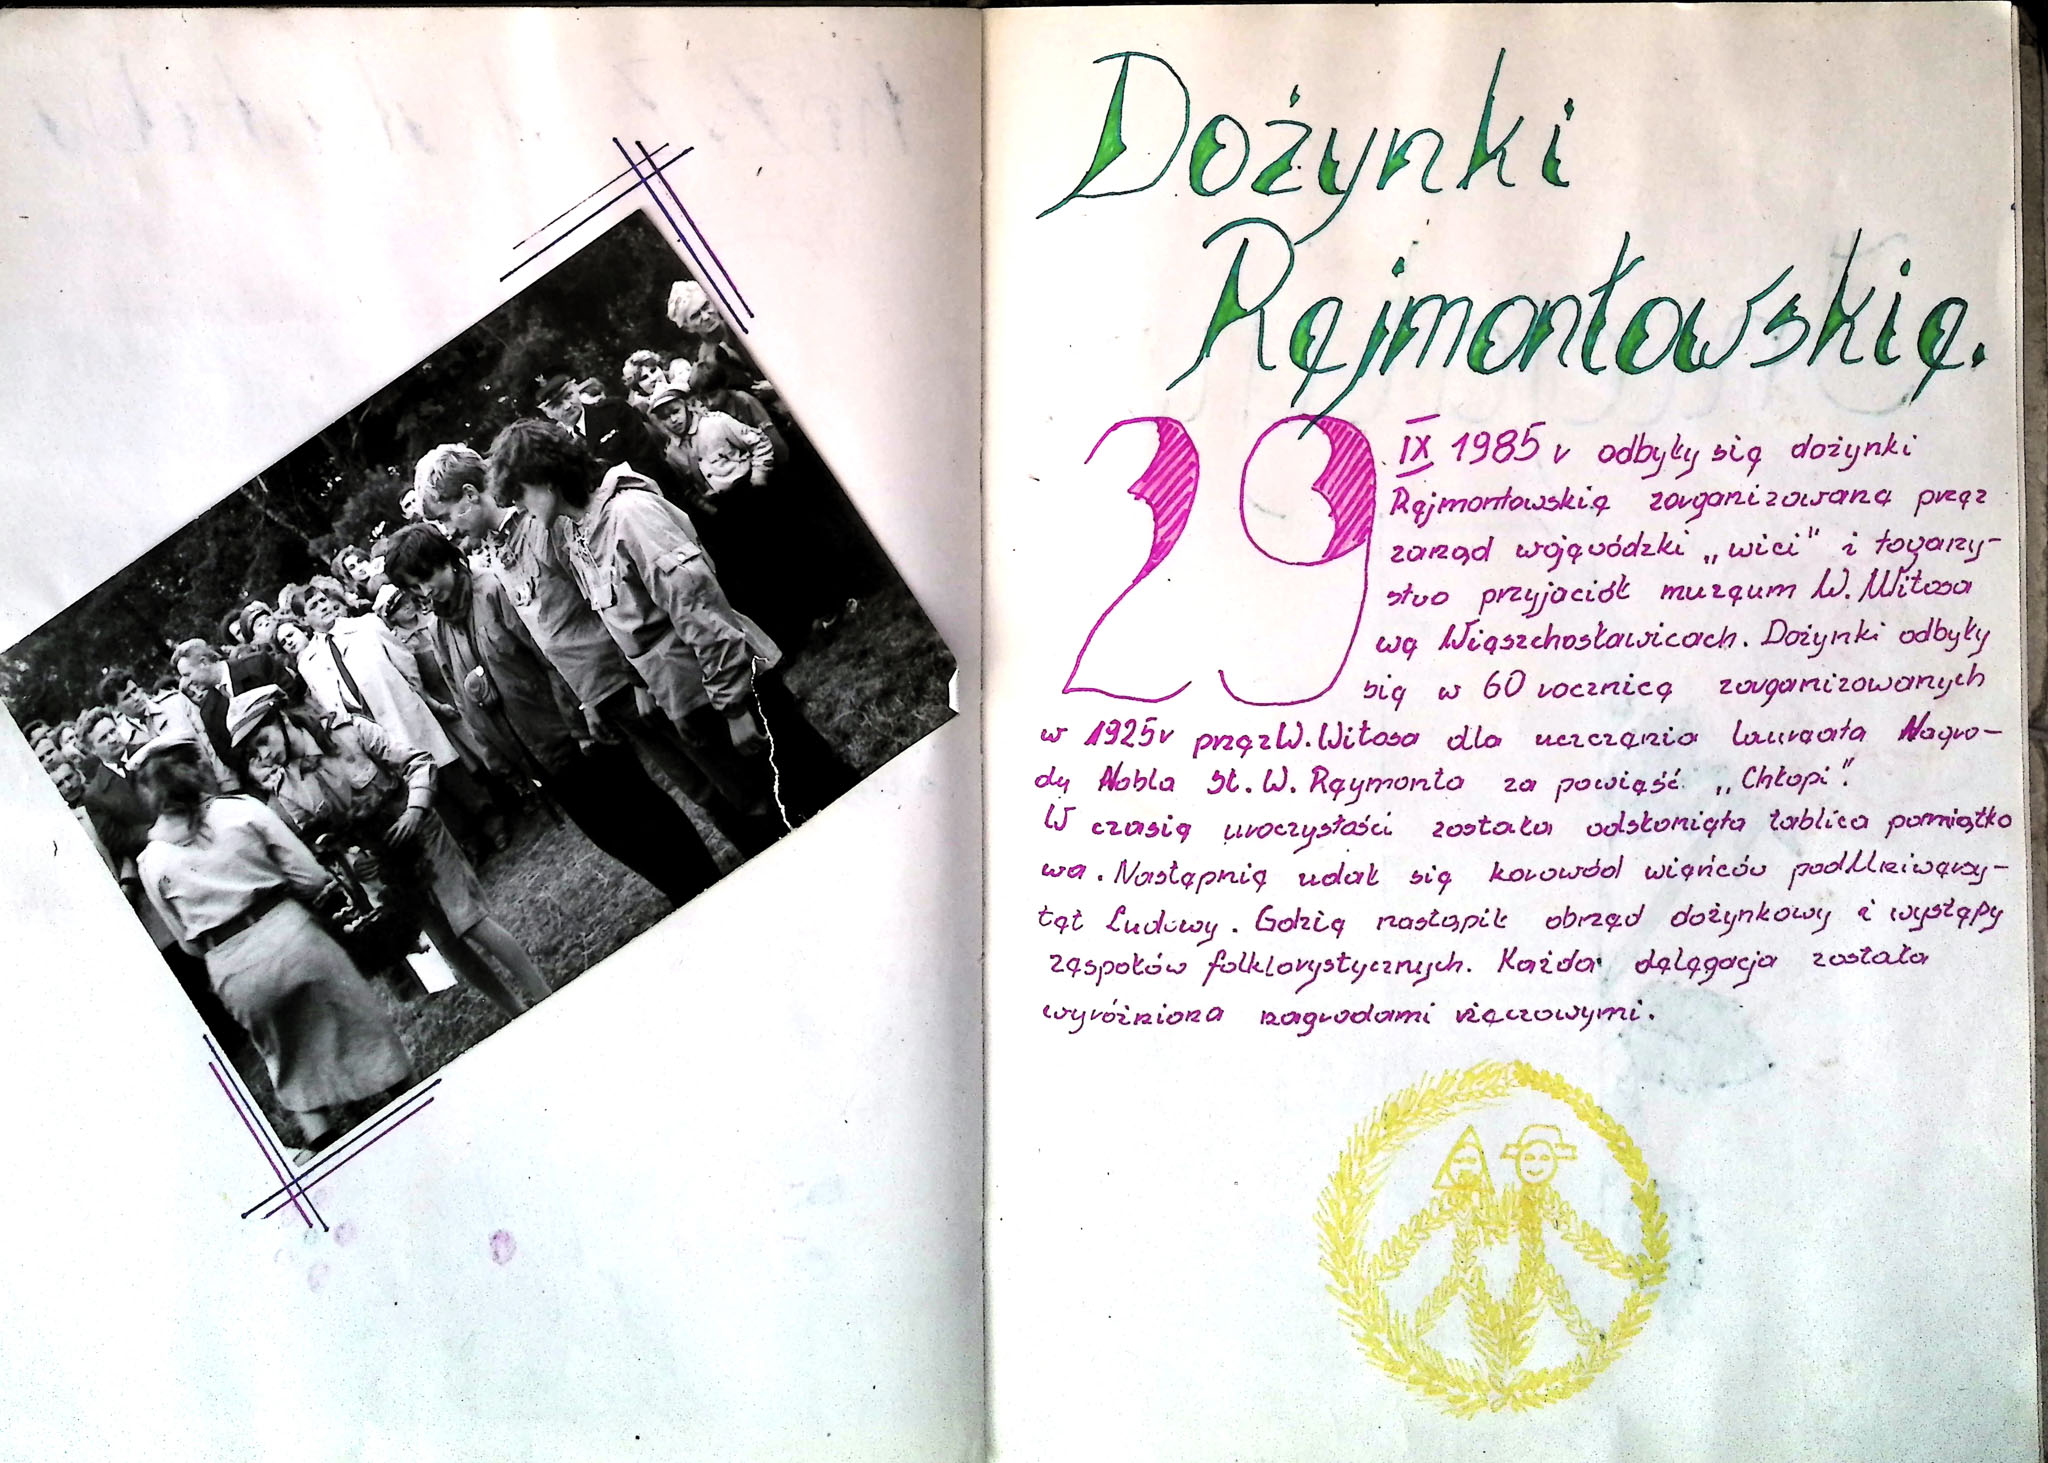 Dożynki
Rejmontowskie.
29 IX 1985 r odbyły się dożynki
Rejmontowskie zorganizowane przez
zarząd wojewódzki „wici" i towarzy-
stwo przyjaciół muzeum W. Witosa
we Wieszchosławicach. Dożynki odbyły
się w 60 rocznicę zorganizowanych
w 1925r przez W. Witosa dla uczczenia laureata Nagro-
dy Nobla St. W. Reymonta za powieść „Chłopi".
W czasie uroczystości została odsłonięta tablica pamiątko
wa. Następnie udał się korowód wieńców pod Uniwersy-
tet Ludowy. Gdzie nastąpił obrzęd dożynkowy i występy
zespołów folklorystycznych. Każda delegacja została
wyróżniona nagrodami rzeczowymi.